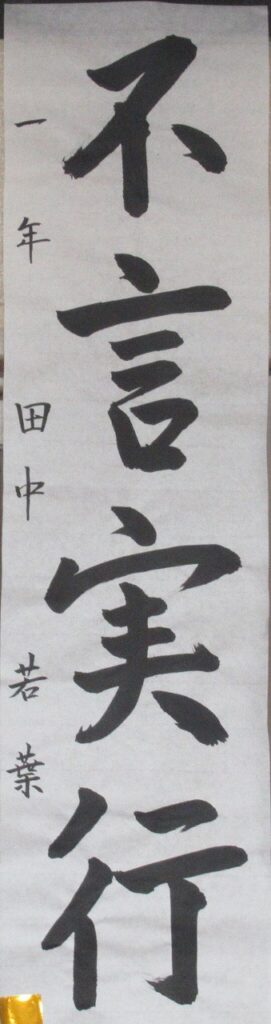 不言実行
一年 田中 若葉